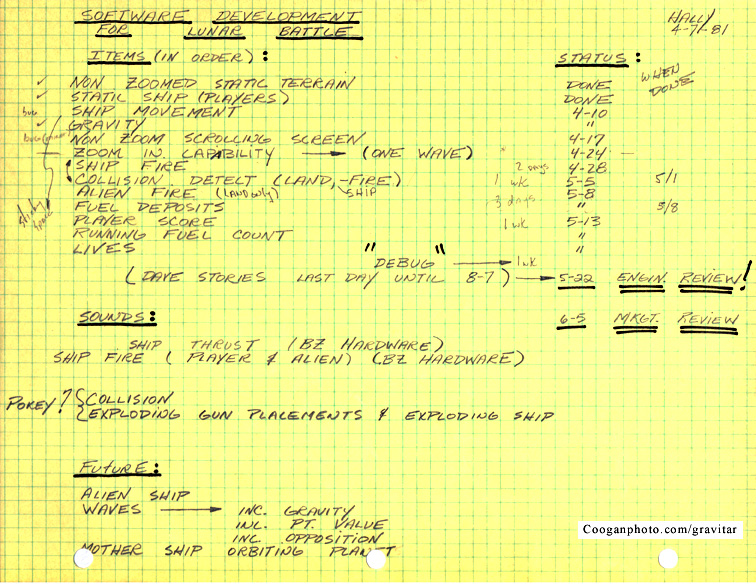 SOFTWARE DEVELOPMENT
FOR LUNAR BATTLE
HALLY
4-7-81
ITEMS (IN ORDER) :
STATUS :
WHEN DONE
✓ NON ZOOMED STATIC TERRAIN DONE
✓ STATIC SHIP (PLAYERS) DONE
bug SHIP MOVEMENT 4-10
✓ GRAVITY "
NON ZOOM SCROLLING SCREEN 4-17
ZOOM IN CAPABILITY → (ONE WAVE) * 4-24
SHIP FIRE 2 days 4-28
COLLISION DETECT (LAND, -FIRE) 1 wk 5-5 5/1
SHIP
ALIEN FIRE (LAND only) 3 days 5-8
FUEL DEPOSITS " 5/8
PLAYER SCORE 1 wk 5-13
RUNNING FUEL COUNT "
LIVES "
"DEBUG" → 1 wk
(DAVE STORIES LAST DAY UNTIL 8-7) → 5-22 ENGIN. REVIEW!
SOUNDS:
6-5 MKGT. REVIEW
SHIP THRUST (BZ HARDWARE)
SHIP FIRE ( PLAYER & ALIEN) (BZ HARDWARE)
POKEY? { COLLISION
EXPLODING GUN PLACEMENTS & EXPLODING SHIP
FUTURE:
ALIEN SHIP
WAVES → INC. GRAVITY
INC. PT. VALUE
INC. OPPOSITION
MOTHER SHIP ORBITING PLANET
Cooganphoto.com/gravitar